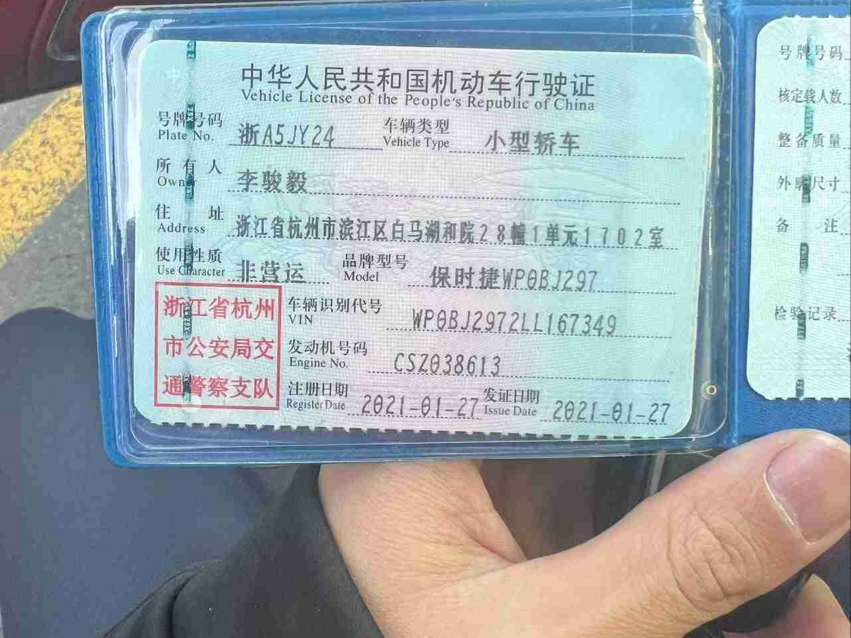 中华人民共和国机动车行驶证
Vehicle License of the People's Republic of China
号牌号码 浙A5JY24 车辆类型 小型轿车
Plate No. Vehicle Type
所有人 李骏毅
Owner
住址 浙江省杭州市滨江区白马湖和院28幢1单元1702室
Address
使用性质 非营运 品牌型号 保时捷WP0BJ297
Use Character Model
浙江省杭州
市公安局交
通警察支队
车辆识别代号 WP0BJ2972LL167349
VIN
发动机号码 CSZ038613
Engine No.
注册日期 2021-01-27 发证日期 2021-01-27
Register Date Issue Date
号牌号码
核定载人数
整备质量
外廓尺寸
备注
检验记录